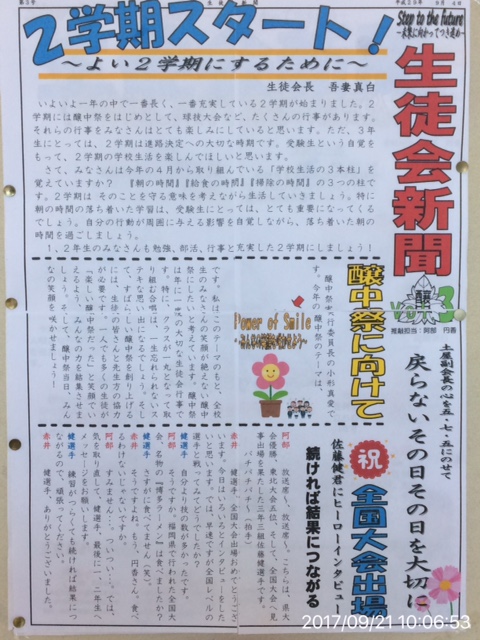 第3号
生徒会新聞
平成29年 9月 4日
2学期スタート！
～よい２学期にするために～
Step to the future
～未来に向かってつき進め～
生徒会新聞
生徒会長 吾妻真白
いよいよ一年の中で一番長く、一番充実している２学期が始まりました。２
学期には醸中祭をはじめとして、球技大会など、たくさんの行事があります。
それらの行事をみなさんはとても楽しみにしていると思います。ただ、３年
生にとっては、２学期は進路決定への大切な時期です。受験生という自覚を
もって、２学期の学校生活を楽しんでほしいと思います。
さて、みなさんは今年の４月から取り組んでいる「学校生活の３本柱」を
覚えていますか？ 『朝の時間』『給食の時間』『掃除の時間』の３つの柱で
す。２学期は そのことを守る意味を考えながら生活していきましょう。特に
朝の時間の落ち着いた学習は、受験生にとっては、とても重要になってくる
でしょう。自分の行動が周囲に与える影響を自覚しながら、落ち着いた朝の
時間を過ごしましょう。
１、２年生のみなさんも勉強、部活、行事と充実した２学期にしましょう！
醸
Vol.3
担当：阿部 円香
土屋副会長の心を五・七・五にのせて
戻らないその日その日を大切に
醸中祭に向けて
醸中祭実行委員長の小形真愛で
す。今年の醸中祭のテーマは、
Power of Smile
です。私はこのテーマのもと、全校
生のみなさんの笑顔が絶えない醸中
祭にしたいと考えています。醸中祭
は年に一度の大切な生徒会行事で
す。特に、クラスが一丸となって取
り組む合唱は、一生忘れられないス
テキな思い出になるでしょう。そし
て、すばらしい醸中祭を創り上げる
には、生徒の皆さんと先生方の協力
が必要です。一人でも多くの生徒が
「楽しい醸中祭だった」と笑顔でい
えるよう、みんなの力を結集させま
しょう。そして、醸中祭当日、みん
なの笑顔が見られますように！
祝 全国大会出場
佐藤健君にヒーローインタビュー
続ければ結果につながる
阿部 放送席～、放送席～。こちらは、県大
会優勝、東北大会五位、そして、全国大会へ見
事出場を果たした三年三組佐藤健選手です。
パチパチパチ～（拍手）
赤井 健選手、全国大会出場おめでとうござ
います。今日はいろいろとインタビューをした
いと思います。早速ですが全国レベルの
選手と戦ってみてどうでしたか？
健選手 自分より技の数が多かったです。
阿部 そうですか。福岡県で行われた全国大
会、名物の『博多ラーメン』は食べましたか？
健選手 さすがに食べてません（笑）。
赤井 そうですよね。もう、円香さん。食べ
るわけないじゃないですか。
阿部 すみません。つい……。では、
気を取り直して、健選手、最後に一、二年生へ
メッセージをお願いします。
健選手 練習がつらくても続ければ結果につ
ながるので、頑張ってください。
赤井 健選手、ありがとうございました。
2017/09/21 10:06:53